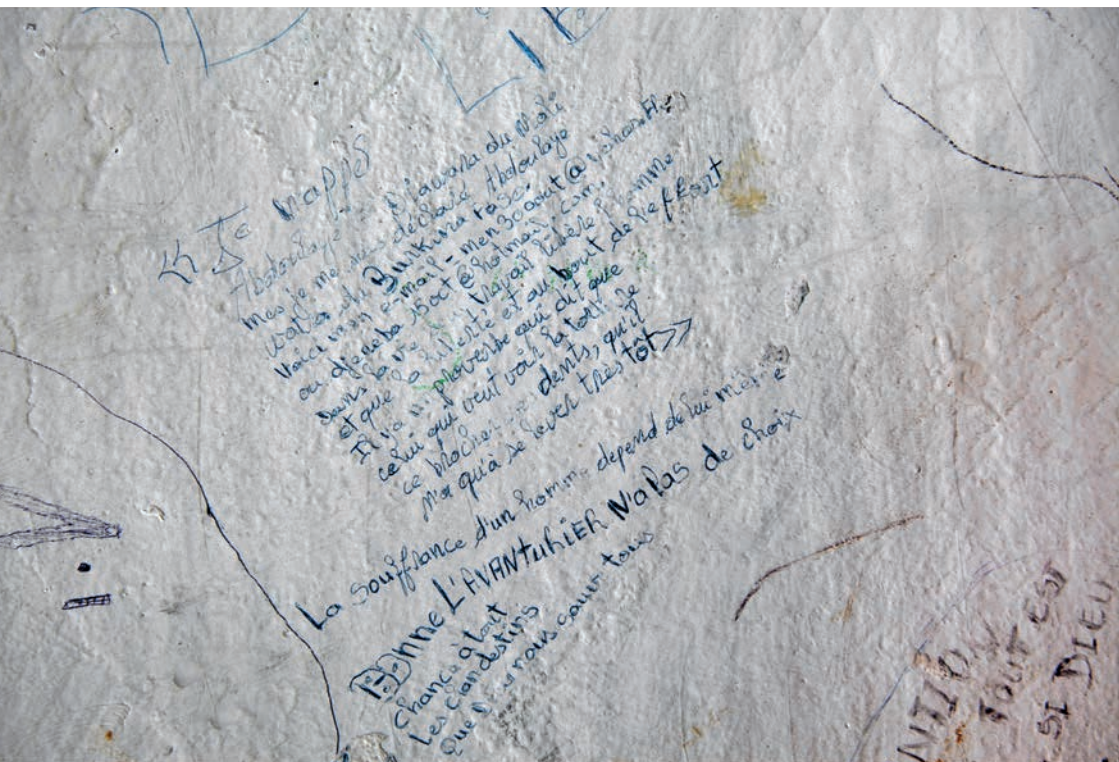 << Je m'appel
Abdoulaye Diawara du Mali
mais je me suis déclaré Abdoulaye
du Burkina Faso.
Voici mon email-men30oout@yahoo.fr
ou djeneba15oct@hotmail.com.
Dans la vie travail libère l'homme
et que la liberté est au bout de l'effort
Il y a un proverbe qui dit que
celui qui veut voir la tortue
ce dents, qu'il
n'a qu'à se lever très tôt >>
La souffrance d'un homme depend de lui même
L'AVANTURIER N'a Pas de choix
BOnne
chance a tout
les clandestins
que nous tous
ATTION
Tout est
SI DIEU